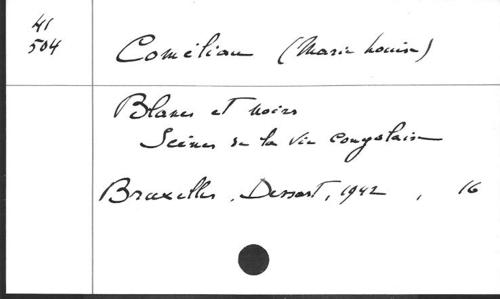 41
504
Coméliau (Marie Louise)
Blancs et noirs
Scènes de la vie congolaise
Bruxelles, Dessart, 1942, 16